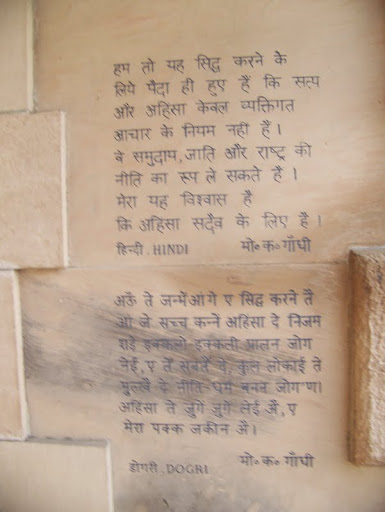 हम तो यह सिद्ध करने के
लिये पैदा ही हुए हैं कि सत्य
और अहिंसा केवल व्यक्तिगत
आचार के नियम नहीं हैं ।
वे समुदाय, जाति और राष्ट्र की
नीति का रूप ले सकते हैं ।
मेरा यह विश्वास है
कि अहिंसा सदैव के लिए है ।
हिन्दी . HINDI मो॰क॰गाँधी
अऊँ ते जन्मेंआंगे ए सिद्ध करने तै
आं जे सच्च कन्नें अहिंसा दे निजम
इक्कली इक्कली पालन जोग
नेईं, ए तें सबतें दे, कुल लोकाई ते
मुल्खै दे नीति धर्म बनन जोग
अहिंसा ते जुगें जुगें लेई ऐ, ए
मेरा पक्क जकीन ऐ।
डोगरी . DOGRI मो॰क॰गाँधी